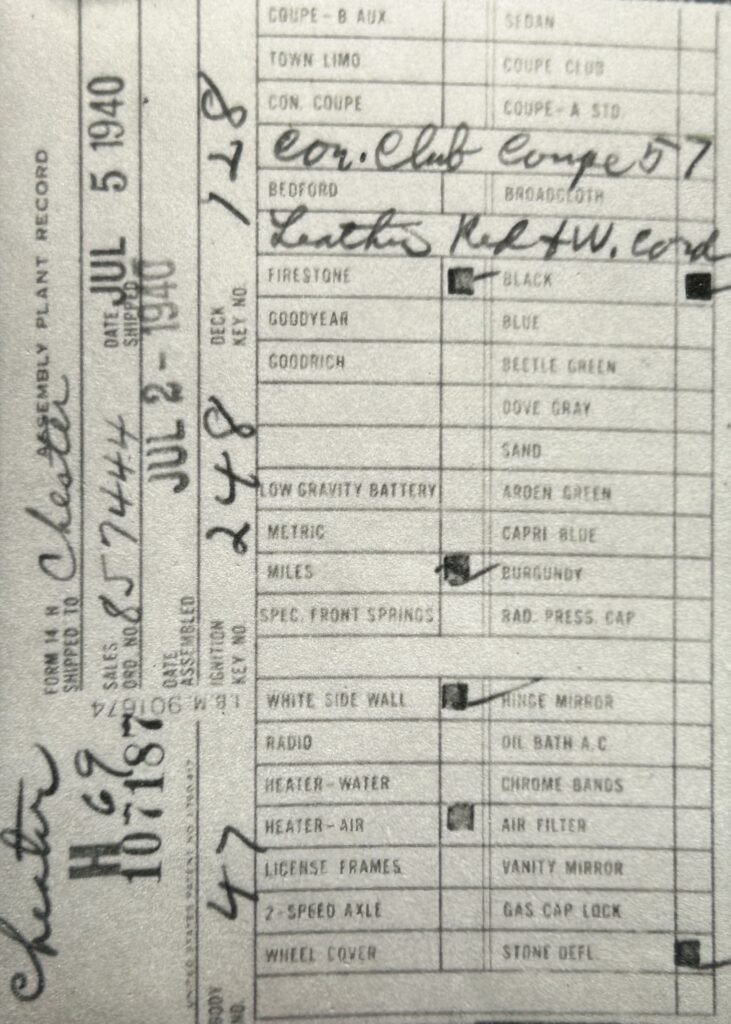 ASSEMBLY PLANT RECORD
FORM 14 N
SHIPPED TO Chester
SALES ORD. NO. 857444
DATE SHIPPED JUL 5 1940
DATE ASSEMBLED JUL 2 - 1940
IGNITION KEY NO. 248
DECK KEY NO. 178
BODY NO. 47
Chester
H 69
107187
LBM 901674
COUPE-B AUX. SEDAN
TOWN LIMO COUPE CLUB
CON. COUPE COUPE-A STD
Con. Club Coupe 57
BEDFORD BROADCLOTH
Leather Red & W. Cord
FIRESTONE BLACK
GOODYEAR BLUE
GOODRICH BEETLE GREEN
DOVE GRAY
SAND
LOW GRAVITY BATTERY ARDEN GREEN
METRIC CAPRI BLUE
MILES BURGUNDY
SPEC. FRONT SPRINGS RAD. PRESS. CAP
WHITE SIDE WALL HINGE MIRROR
RADIO OIL BATH A.C
HEATER-WATER CHROME BANDS
HEATER-AIR AIR FILTER
LICENSE FRAMES VANITY MIRROR
2-SPEED AXLE GAS CAP LOCK
WHEEL COVER STONE DEFL.